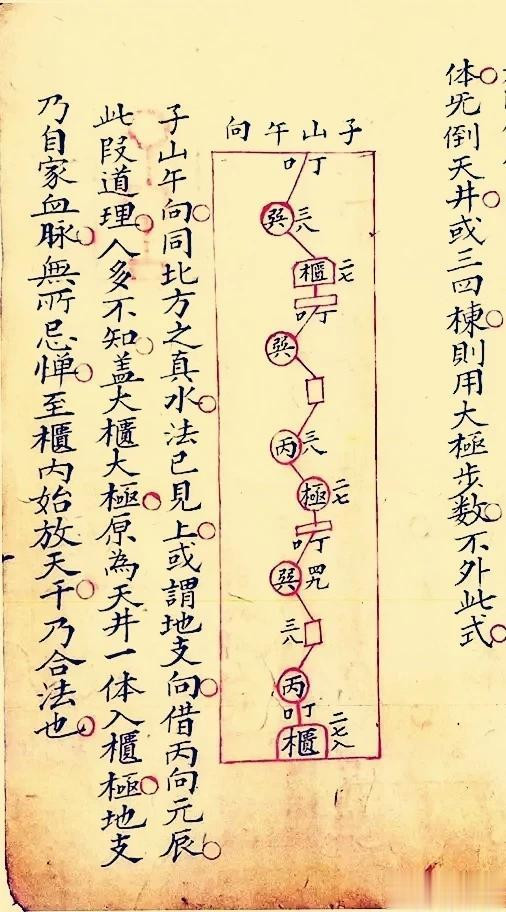 体旡倒天井或三四棟則用大極步數不外此式
子山午向
丁口
巽 三八
櫃 二七
丁口
巽
丙 三八
極 二七
丁口
巽 四九
三八
丙
丁口
櫃 二七八
子山午向同北方之真水法已見上或謂地支向借丙向元辰
此段道理人多不知盖大櫃大極原為天井一体入櫃極地支
乃自家血脉無所忌惮至櫃内始放天千乃合法也